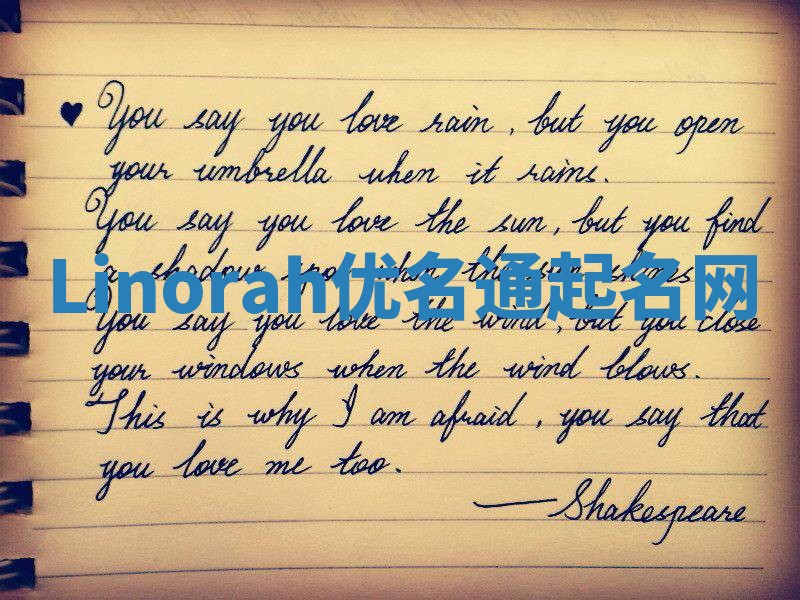 ♥ You say you love rain, but you open
your umbrella when it rains.
You say you love the sun, but you find
a shadow spot when the sun shines
Linorah优名通起名网
You say you love the wind, but you close
your windows when the wind blows.
This is why I am afraid, you say that
you love me too.
—Shakespeare